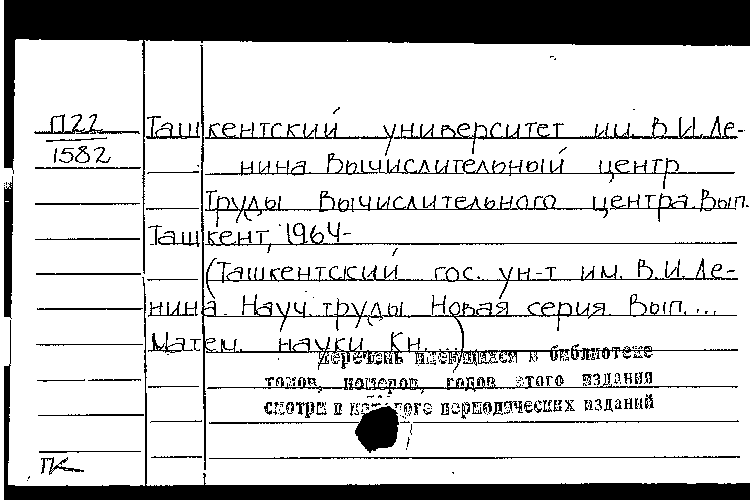 П22
1582
Ташкентский университет им. В.И.Ле-
нина. Вычислительный центр
Труды Вычислительного центра. Вып.
Ташкент, 1964-
(Ташкентский гос. ун-т им. В.И.Ле-
нина. Науч. труды. Новая серия. Вып. ...
Матем. науки. Кн. )
Перечень имеющихся в библиотеке
томов, номеров, годов этого издания
смотри в каталоге периодических изданий
ПК